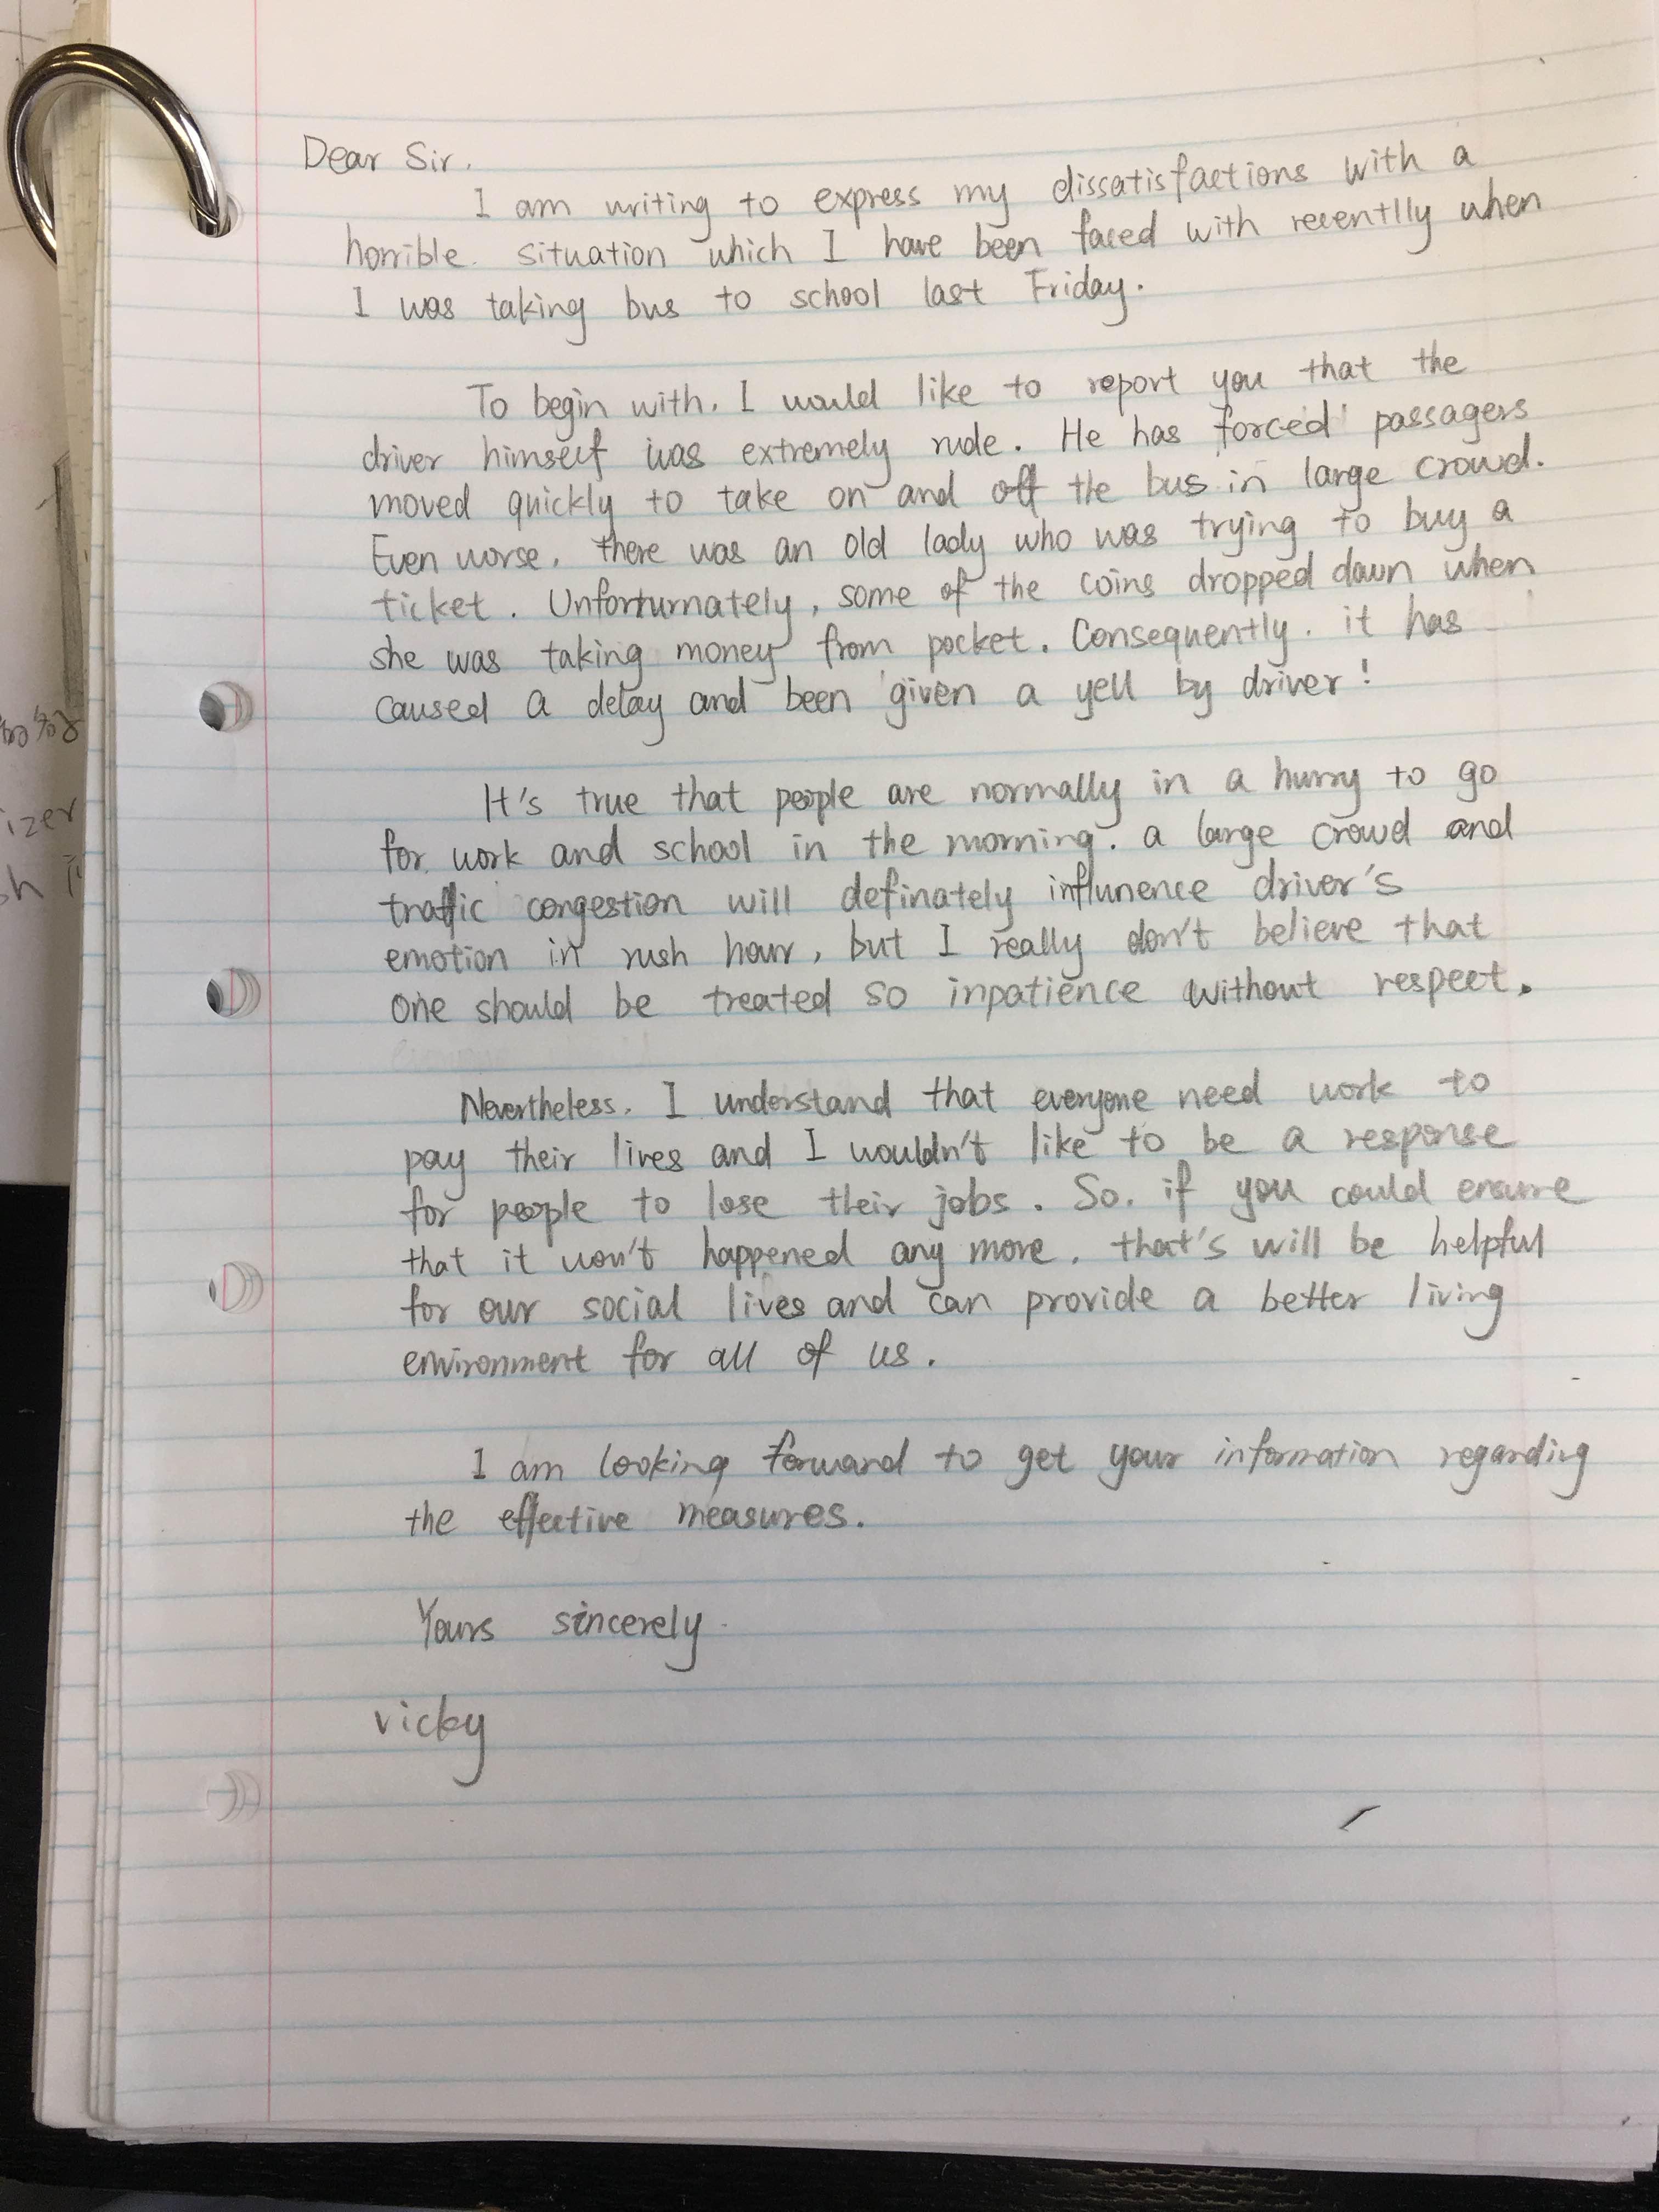 Dear Sir.
I am writing to express my dissatisfactions with a
horrible situation which I have been faced with recentlly when
I was taking bus to school last Friday.
To begin with, I would like to report you that the
driver himself was extremely rude. He has forced passagers
moved quickly to take on and off the bus in large crowd.
Even worse, there was an old lady who was trying to buy a
ticket. Unforturnately, some of the coins dropped down when
she was taking money from pocket. Consequently. it has
caused a delay and been given a yell by driver!
It's true that people are normally in a hurry to go
for work and school in the morning. a large crowd and
traffic congestion will definately influnence driver's
emotion in rush hour, but I really don't believe that
one should be treated so inpatience without respect.
Nevertheless. I understand that everyone need work to
pay their lives and I wouldn't like to be a response
for people to lose their jobs. So. if you could ensure
that it won't happened any more, that's will be helpful
for our social lives and can provide a better living
environment for all of us.
I am looking forward to get your information regarding
the effective measures.
Yours sincerely
vicky
izer